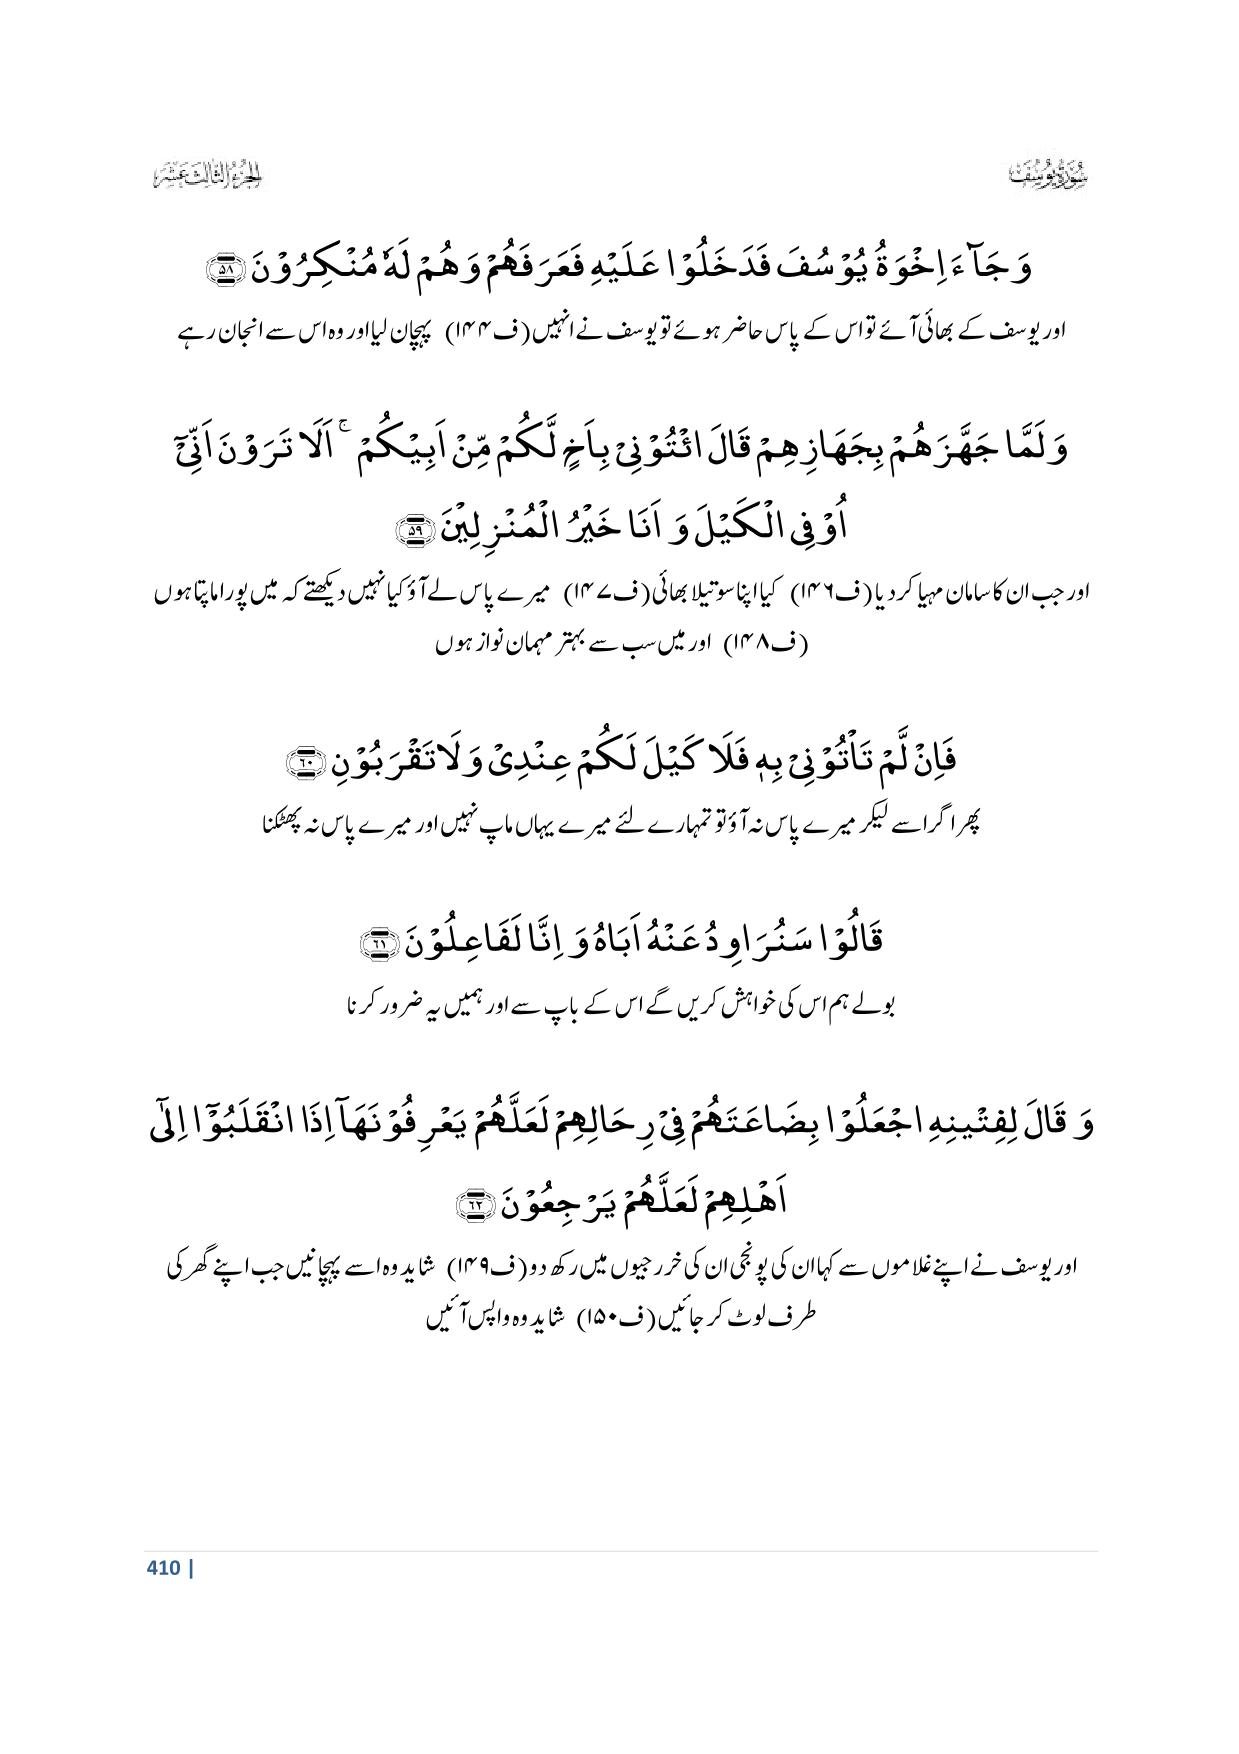 سُوْرَۃُ یُوْسُف
الجزء الثالث عشر
وَ جَآءَ اِخْوَۃُ یُوْسُفَ فَدَخَلُوْا عَلَیْہِ فَعَرَفَہُمْ وَ ہُمْ لَہٗ مُنْکِرُوْنَ ﴿۵۸﴾
اور یوسف کے بھائی آئے تو اس کے پاس حاضر ہوئے تو یوسف نے انہیں (ف۱۴۴) پہچان لیا اور وہ اس سے انجان رہے
وَ لَمَّا جَہَّزَہُمْ بِجَہَازِہِمْ قَالَ ائْتُوْنِیْ بِاَخٍ لَّکُمْ مِّنْ اَبِیْکُمْ ۚ اَلَا تَرَوْنَ اَنِّیْۤ
اُوْفِی الْکَیْلَ وَ اَنَا خَیْرُ الْمُنْزِلِیْنَ ﴿۵۹﴾
اور جب ان کا سامان مہیا کر دیا (ف۱۴۶) کیا اپنا سوتیلا بھائی (ف۱۴۷) میرے پاس لے آؤ کیا نہیں دیکھتے کہ میں پورا ماپتا ہوں
(ف۱۴۸) اور میں سب سے بہتر مہمان نواز ہوں
فَاِنْ لَّمْ تَاْتُوْنِیْ بِہٖ فَلَا کَیْلَ لَکُمْ عِنْدِیْ وَ لَا تَقْرَبُوْنِ ﴿۶۰﴾
پھر اگر اسے لیکر میرے پاس نہ آؤ تو تمہارے لئے میرے یہاں ماپ نہیں اور میرے پاس نہ پھٹکنا
قَالُوْا سَنُرَاوِدُ عَنْہُ اَبَاہُ وَ اِنَّا لَفَاعِلُوْنَ ﴿۶۱﴾
بولے ہم اس کی خواہش کریں گے اس کے باپ سے اور ہمیں یہ ضرور کرنا
وَ قَالَ لِفِتْیٰنِہِ اجْعَلُوْا بِضَاعَتَہُمْ فِیْ رِحَالِہِمْ لَعَلَّہُمْ یَعْرِفُوْنَہَاۤ اِذَا انْقَلَبُوْۤا اِلٰۤی
اَہْلِہِمْ لَعَلَّہُمْ یَرْجِعُوْنَ ﴿۶۲﴾
اور یوسف نے اپنے غلاموں سے کہا ان کی پونجی ان کی خررجیوں میں رکھ دو (ف۱۴۹) شاید وہ اسے پہچانیں جب اپنے گھر کی
طرف لوٹ کر جائیں (ف۱۵۰) شاید وہ واپس آئیں
410 |